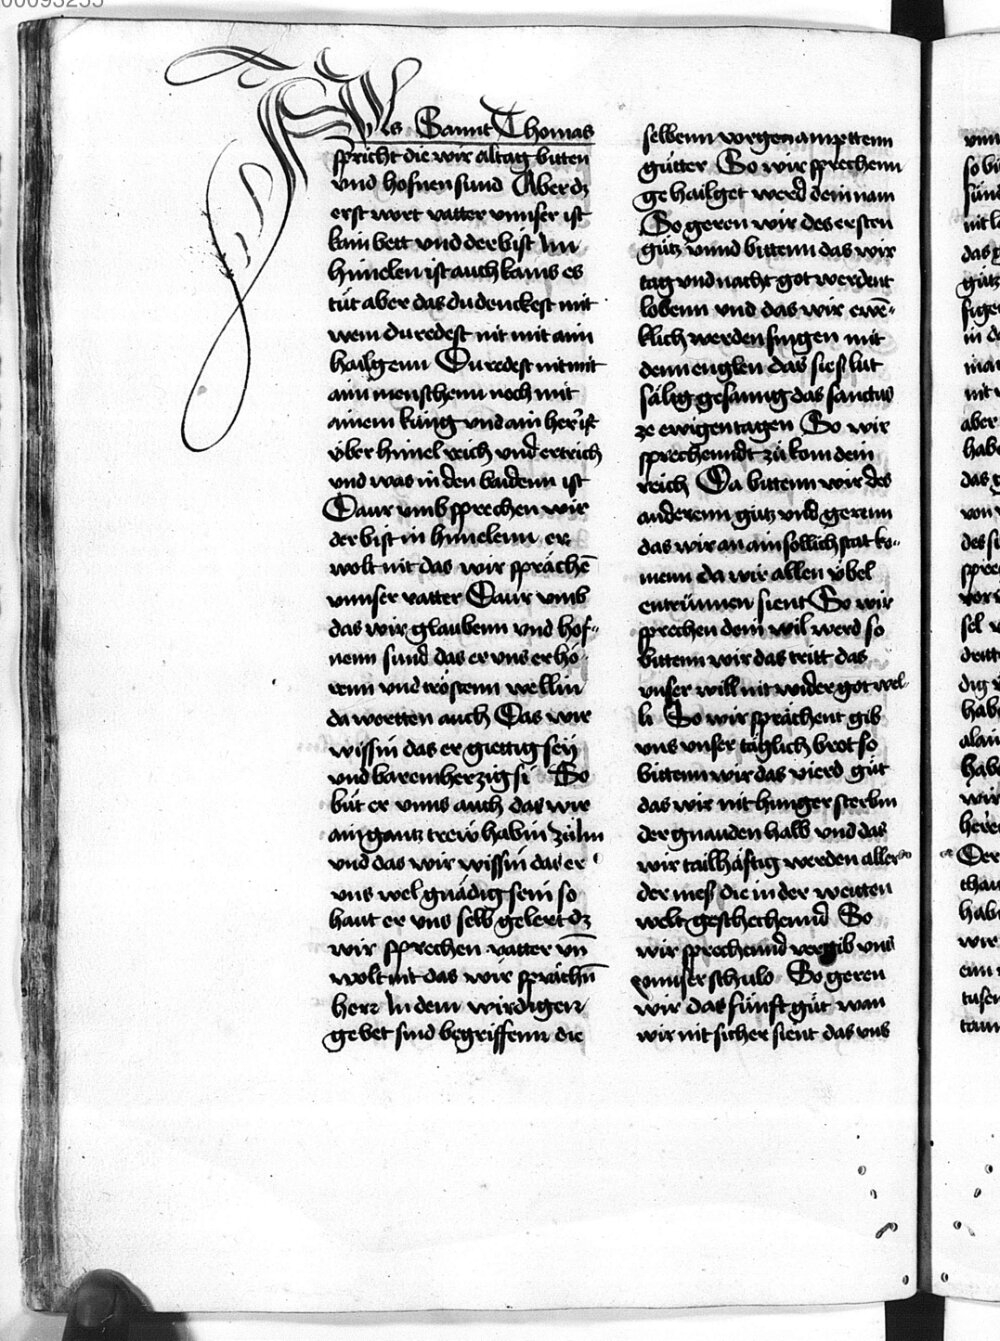 00093255
Als Sannt Thomas
spricht die wir altag bitten
vnd hofnen sind Aber dz
erst wort vatter vnnser ist
kain bett vnd der bist Im
himelen ist auch kains es
tůt aber das du denckest mit
wem du redest nit mit ain
hailgenn Du redest nit mit
ain menschenn noch mit
ainem küng vnd ain her ist
v̈ber himel reich vnd ertrich
vnd was in den baidenn ist
Darumb sprechen wir
der bist in himelenn er
wolt nit das wir sprächē
vnnser vatter Darumb
das wir glaubenn vnd hof-
nenn sind das er vns er hö-
renn vnd tröstenn wellin
da wortten auch Das wir
wissin das er giettig seÿ
vnd baremherzig si So
büt er vnns auch das wir
ain gantz trew habin zů Im
vnd das wir wissin das er
vns wel gnädig sein so
haut er vns selb gelert dz
wir sprechen vatter vn̄
wolt nit das wir sprächn̄
herr In dem wirdigen
gebet sind begriffenn die
selbenn vorgenampttenn
gütter So wir sprechenn
gehailget werd dein nam
So geren wir des ersten
gütz vnnd bittenn das wir
tag vnd nacht got werdent
lobenn vnd das wir ewē-
klich werden singen mit
denn englen das sieslut
sälig gesanng das sanctus
ze ewigen tagen So wir
sprechenndt zů kom dein
reich Da bittenn wir des
anderenn gütz vnd gerenn
das wir an ain sollich stat ko-
menn da wir allen v̈bel
entrünnen sient So wir
sprechen dein wil werd so
bittenn wir das tritt das
vnser will nit wider got wel-
li So wir sprächent gib
vns vnser täglich brot so
bittenn wir das vierd güt
das wir nit hunger sterbin
der gnauden halb vnd das
wir tailhäftig werden aller
der mess die in der weitten
welt geschechennd So
wir sprechennd vergib vns
vnnser schuld So geren
wir das fünft güt wan
wir nit sicher sient das vns